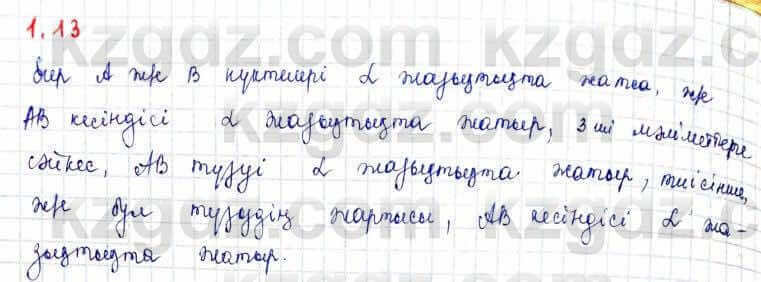 1.13
Егер A және B нүктелері α жазықтықта жатса, және
AB кесіндісі α жазықтықта жатыр, 3 ші мәліметтерге
сәйкес, AB түзуі α жазықтықта жатыр, тиісінше,
және бұл түзудің жартысы, AB кесіндісі α жа-
зықтықта жатыр.